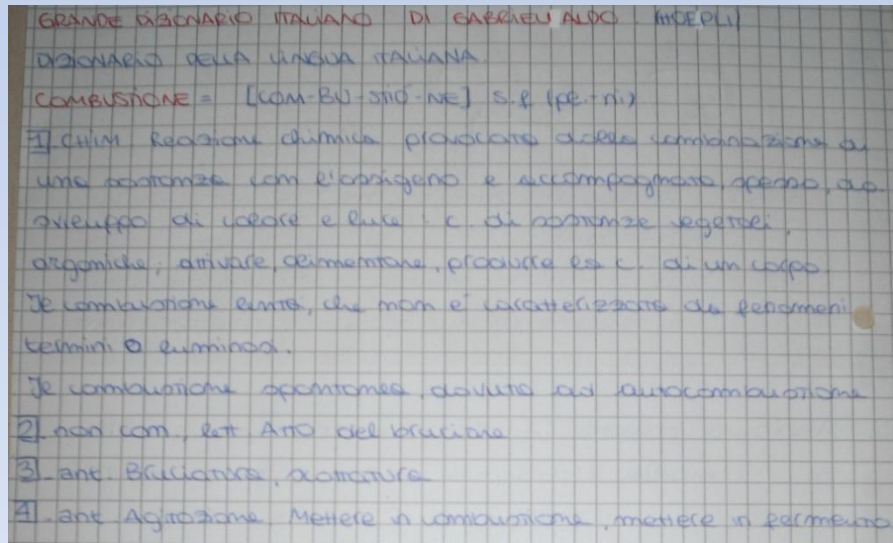 GRANDE DIZIONARIO ITALIANO DI GABRIELI ALDO (HOEPLI)
DIZIONARIO DELLA LINGUA ITALIANA.
COMBUSTIONE = [COM-BU-STIO-NE] s.f (pe.-ni)
1 CHIM Reazione chimica provocata dalla combinazione di
una sostanza con l'ossigeno e accompagnata, spesso, da
sviluppo di calore e luce: c. di sostanze vegetali,
organiche; attivare, alimentare, produrre la c. di un corpo
|| combustione lenta, che non è caratterizzata da fenomeni
termini o luminosi.
|| combustione spontanea, dovuta ad autocombustione
2 non com, lett Atto del bruciare
3 ant. Bruciatura, scottatura
4 ant Agitazione Mettere in combustione, mettere in fermento